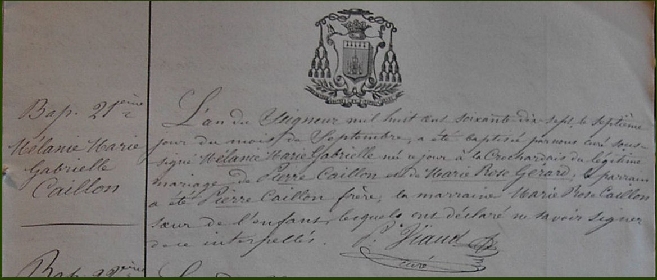 Bap. 21ième
Mélanie Marie
Gabrielle
Caillon
L'an du Seigneur mil huit cent soixante-dix-sept, le septième
jour du mois de Septembre, a été baptisée par nous curé sous-
signé Mélanie Marie Gabrielle née ce jour à la Crochardais du légitime
mariage de Pierre Caillon et de Marie Rose Gérard; le parrain
a été Pierre Caillon frère, la marraine Marie Rose Caillon
sœur de l'enfant, lesquels ont déclaré ne savoir signer
de ce interpellés.
P. Viaud
curé
Bap.
L'an du